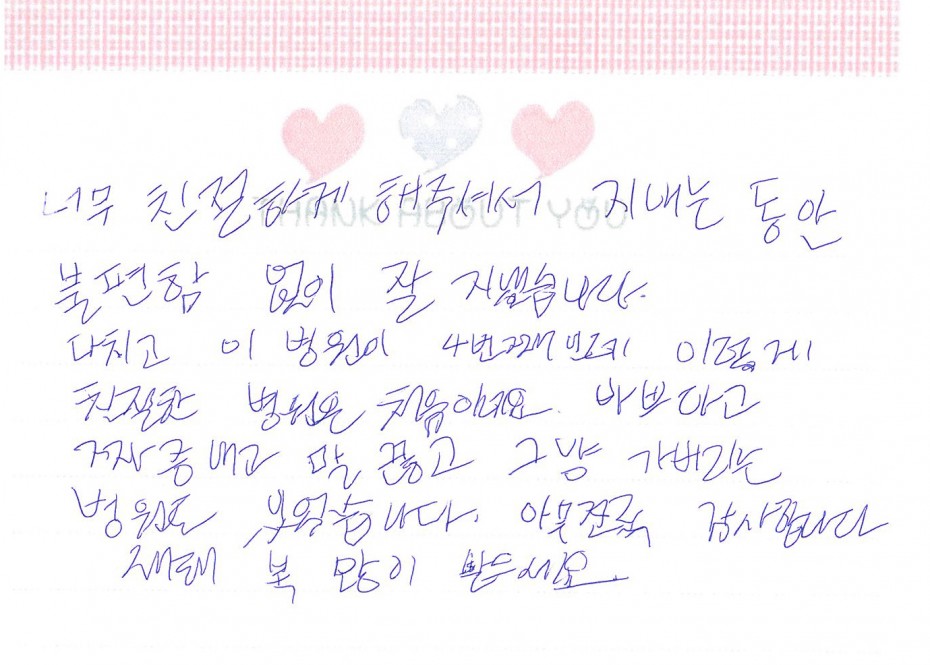 THANK ABOUT YOU
너무 친절하게 해주셔서 지내는 동안
불편함 없이 잘 지냈습니다.
다치고 이 병원이 4번째 이렇게
친절한 병원은 처음이네요. 바쁘다고
짜증내고 말 끊고 그냥 가버리는
병원도 있었습니다. 아무쪼록 감사합니다
새해 복 많이 받으세요.